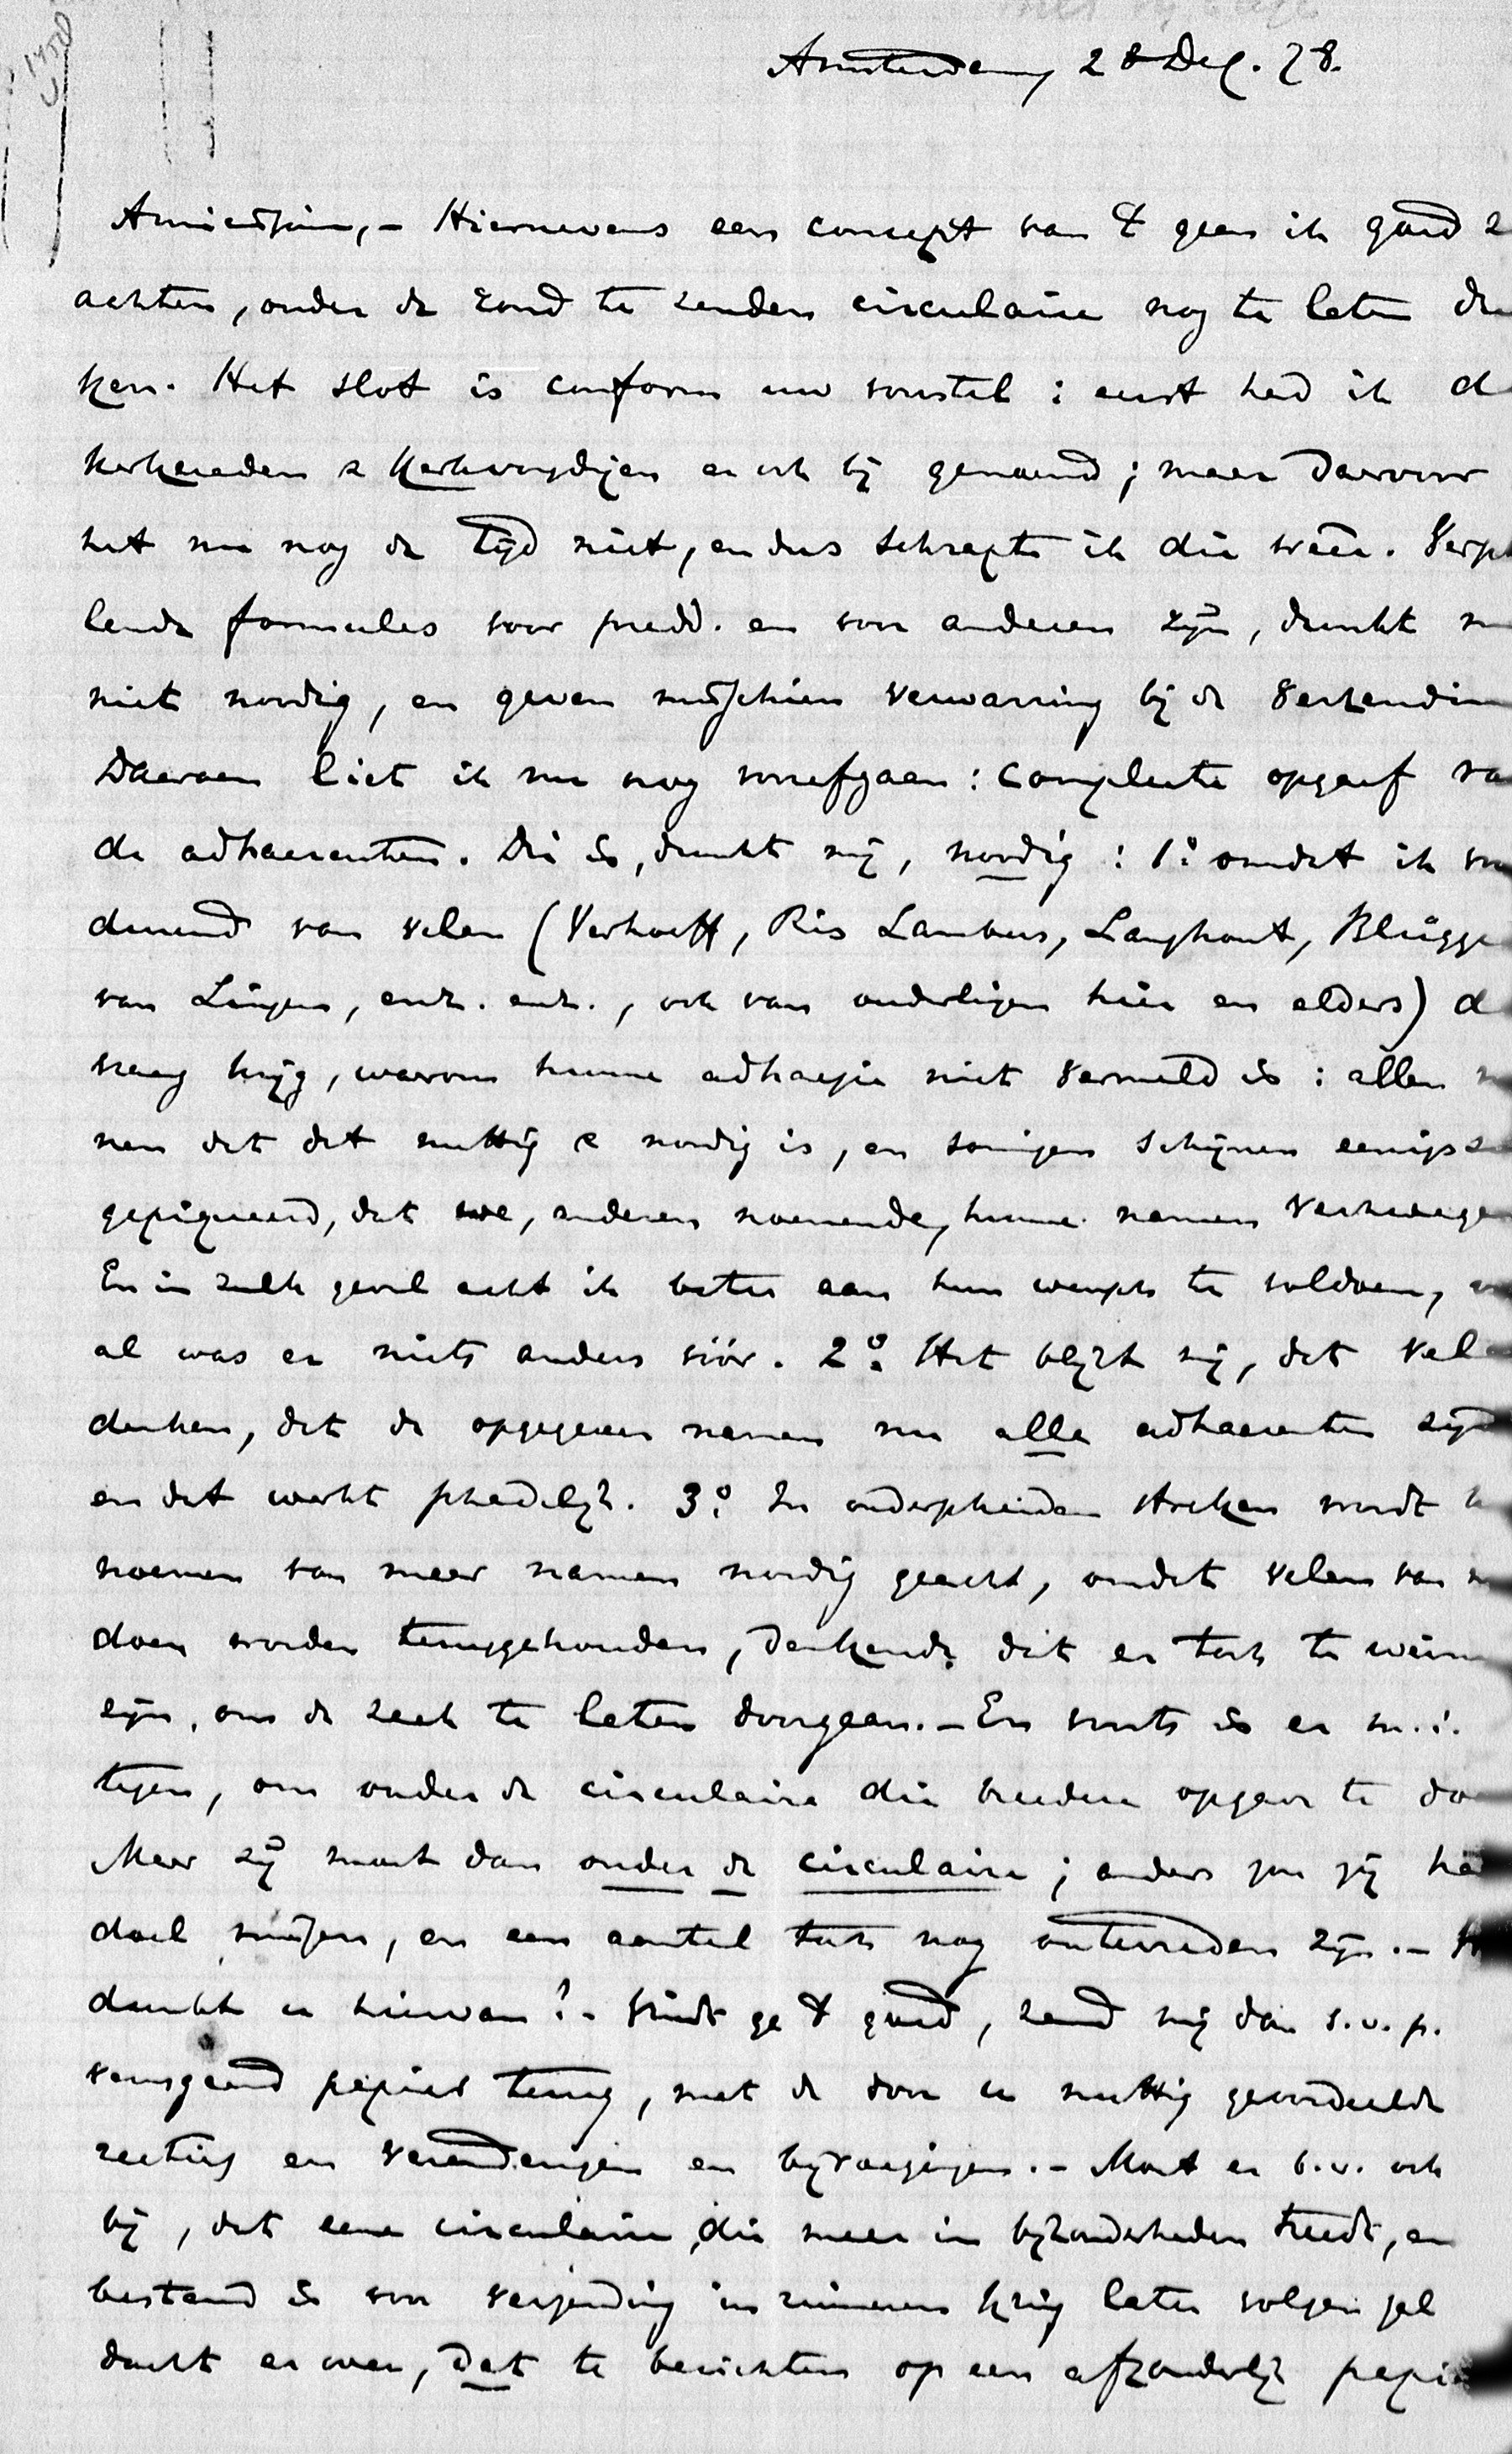 Amsterdam, 28 Dec. 78.
Amicissime, – Hiernevens een concept van 't geen ik goed z
achten, onder de rond te zenden circulaire nog te laten dru
ken. Het slot is conform uw voorstel: eerst had ik d
kerkeraden & kerkvoogdijen er ook bij genoemd; maar daarvoor
het nu nog de tijd niet, en dus schrapte ik die weêr. Versch
lende formules voor predd. en voor anderen zijn, dunkt m
niet noodig, en geven misschien verwarring bij de verzendin
Daaraan liet ik nu nog voorafgaan: complete opgaaf va
de adhaerenten. Die is, dunkt mij, noodig: 1o. omdat ik voort
durend van velen (Verhoeff, Ris Lambers, Langhout, Blügge
van Lingen, enz. enz., ook van ouderlingen hier en elders) d
vraag krijg, waarom hunne adhaesie niet vermeld is: allen m
nen dat dit nuttig & noodig is, en sommigen schijnen eenigsz
gepiqueerd, dat we, anderen noemende, hunne namen verzwegen
En in zulk geval acht ik beter aan hun wensch te voldoen,
al was er niets anders vóór. 2o. Het blijkt mij, dat vele
denken, dat de opgegeven namen nu alle adhaerenten zijn
en dat werkt schadelijk. 3o. In onderscheiden streken wordt h
noemen van meer namen noodig geacht, omdat velen van m
doen worden teruggehouden, denkende dat er toch te wein
zijn, om de zaak te laten doorgaan. – En niets is er m.i.
tegen, om onder de circulaire die breedere opgave te do
Maar zij moet dan onder de circulaire; anders zou zij he
doel missen, en een aantal toch nog ontevreden zijn. –
dunkt u hiervan? – Vindt ge 't goed, zend mij dan s.v.p.
vensgaand papier terug, met de door u nuttig geoordeelde
recties en veranderingen en bijvoegingen. – Moet er b.v. ook
bij, dat eene circulaire, die meer in bijzonderheden treedt, en
bestemd is voor verspreiding in ruimeren kring later volgen zal
dacht er over, dat te berichten op een afzonderlijk papie